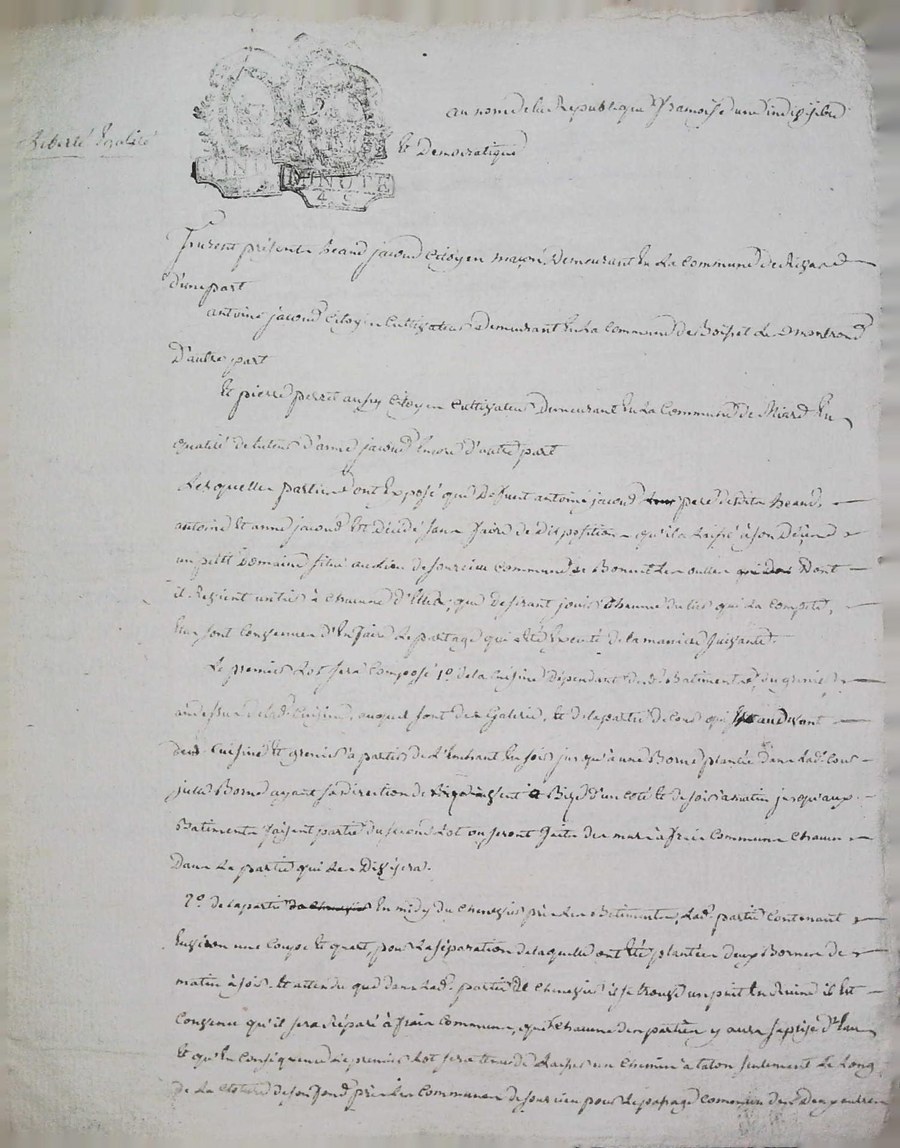 au nom de la Republique francoise une indivisible
Liberté Egalité
et Democratique
MINUTE
MINUTE
45
furent présents jacoud Citoyen maçon demeurant en la commune de
D'une part
antoine jacoud Citoyen Cultivateur Demeurant en la Commune de Boisset Les montrond
D'autre part
Et pierre perret aussy Citoyen Cultivateur Demeurant en la Commune de en
qualité de tuteur d'anne jacoud encore d'autre part
Lesquelles parties ont Exposé que Defunt antoine jacoud pere desdits
antoine et anne jacoud est Décédé sans faire de disposition qu'il a Laissé à son Décéd
un petit Domaine situé au lieu de commune de Bonnet Les oulles Dont
il Revient un tiers à chacune d'Elles, que desirant jouir chacune du tiers qui La Compete,
Elles sont Convenues d'En faire Le partage qui a été Executé de la maniere suivante.
Le premier Lot sera Composé 1o. de la Cuisine Dépendant desd. Batiments, du grenier
au dessus de lad. Cuisine, auquel sont des Galeries, et de la partie de cour qui audevant
desd. Cuisine et grenier à partir de L'Entrant en soir jusqu'à une Borne plantée dans Lad. Cour
Borne ayant sa direction de à Bize d'un coté et de soir à matin jusqu'aux
Batiments faisant partie du second Lot ou seront faits des murs à frais Communs chacun
Dans La partie qui Les Divisera.
2o. de la partie En midy du chenevier près Les Batiments, Lad. partie contenant
Environ une Coupe et quart, pour La séparation de laquelle ont été plantées deux Bornes de
matin à soir. Et attendu que dans Lad. partie de chenevier il se trouve un puit En Ruine il Est
Convenu qu'il sera Réparé à frais Communs, que chacune des parties y aura sa prise d'Eau
Et qu'En Conséquence Le premier Lot sera tenu de Laisser un chemin à talon seulement Le Long
de La cloture de son fond près Les Communes de pour Le passage commun des Deux autres